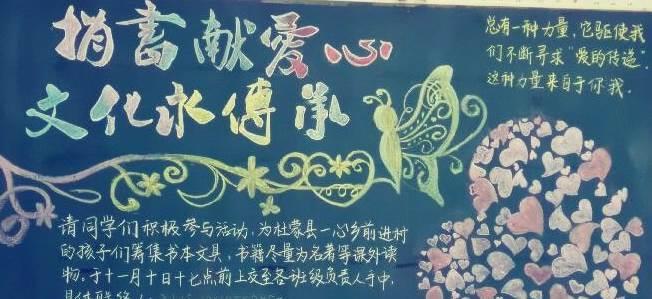 捐書献爱心
文化永傳承
总有一种力量，它驱使我
们不断寻求"爱的传递"。
这种力量来自于你我。
请同学们积极参与活动，为杜蒙县一心乡前进村
的孩子们筹集书本文具，书籍尽量为名著等课外读
物。于十一月十日十七点前上交至各班级负责人手中，